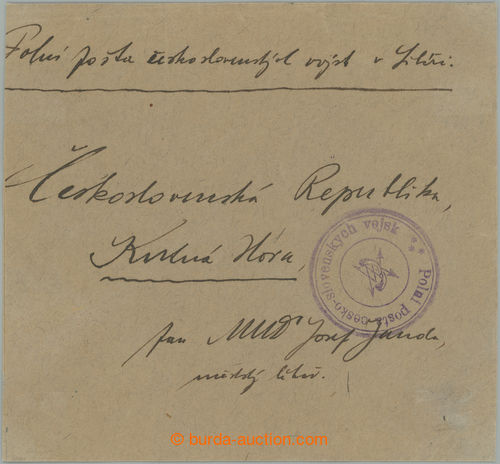 Polní pošta československých vojsk v Sibíři.
Československá Republika,
Kutná Hora,
Pan MUDr Josef Janda,
městský lékař.
Polní pošta česko-slovenských vojsk **
© burda-auction.com